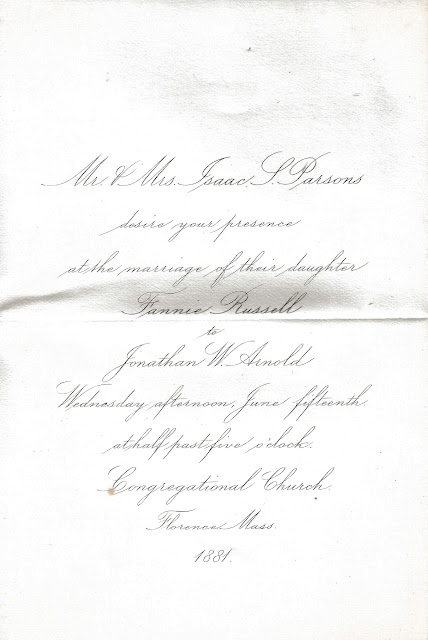 Mr. & Mrs. Isaac S. Parsons
desire your presence
at the marriage of their daughter
Fannie Russell
to
Jonathan W. Arnold
Wednesday afternoon, June fifteenth.
at half past five o'clock.
Congregational Church.
Florence, Mass.
1881.